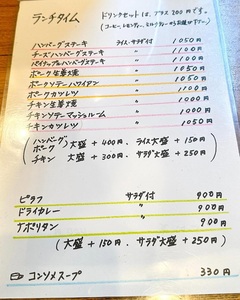 ランチタイム
ドリンクセットは、プラス200円です。
ハンバーグステーキ ライス・サラダ付 1050円
チーズハンバーグステーキ 〃 1100円
パイナップルハンバーグステーキ 〃 1100円
ポーク生姜焼 〃 1050円
ポークソテーハワイアン 〃 1100円
ポークカツレツ 〃 1050円
チキン生姜焼 〃 1000円
チキンソテーマッシュルーム 〃 1050円
チキンカツレツ 〃 1050円
(ハンバーグ、ポーク 大盛 +400円、ライス大盛 +150円
チキン 大盛 +300円、サラダ大盛 +250円)
ピラフ サラダ付 900円
ドライカレー 〃 900円
ナポリタン 〃 900円
(大盛 +150円、サラダ大盛 +250円)
コンソメスープ 330円